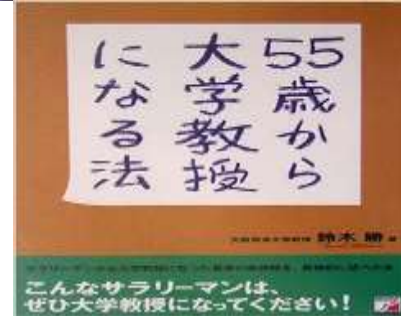 55歳から
大学教授
になる法
鈴木 勝
こんなサラリーマンは、
ぜひ大学教授になってください!